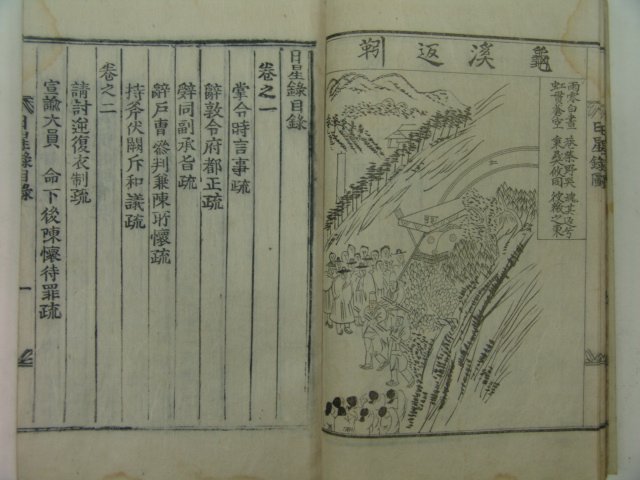 龜溪返靷
野哭 魂其返兮
虹貫 秉彝攸同 之東
日星錄圖
日星錄目錄
卷之一
掌令時言事疏
辭敦令府都正疏
辭同副承旨疏
辭戶曹參判兼陳所懷疏
持斧伏闕斥和議疏
卷之二
請討逆復衣制疏
宣諭大員 命下後陳懷待罪疏
日星錄目錄 一